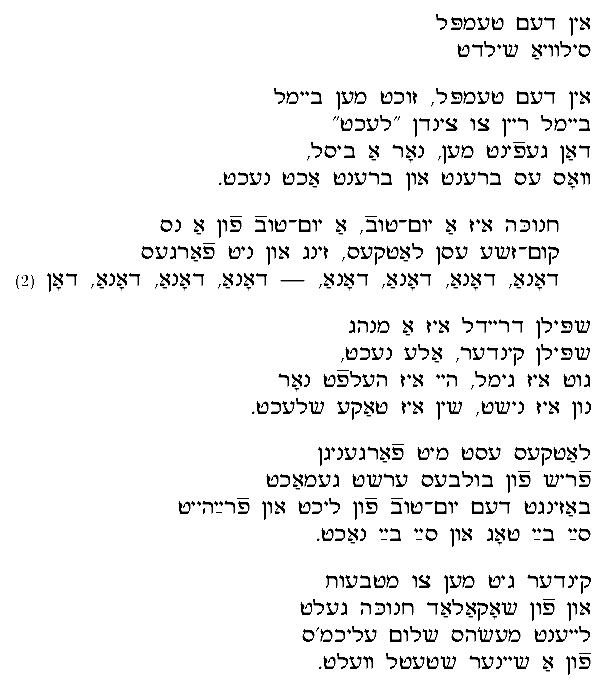 אין דעם טעמפּל
סילוויאַ שילדט
אין דעם טעמפּל, זוכט מען ביימל
ביימל ריין צו צינדן "לעכט"
דאַן געפֿינט מען, נאָר אַ ביסל,
וואָס עס ברענט און ברענט אַכט נעכט.
חנוכּה איז אַ יום־טובֿ, אַ יום־טובֿ פֿון אַ נס
קום־זשע עסן לאַטקעס, זינג און ניט פֿאַרגעס
דאָנאַ, דאָנאַ, דאָנאַ, דאָנאַ, — דאָנאַ, דאָנאַ, דאָנאַ, דאָן (2)
שפּילן דריידל איז אַ מנהג
שפּילן קינדער, אַלע נעכט,
גוט איז גימל, היי איז העלפֿט נאָר
נון איז נישט, שין איז טאַקע שלעכט.
לאַטקעס עסט מיט פֿאַרגעניגן
פֿריש פֿון בולבעס ערשט געמאַכט
באַזינגט דעם יום־טובֿ פֿון ליכט און פֿרײַהייט
סײַ בײַ טאָג און סײַ בײַ נאַכט.
קינדער גיט מען צו מטבעות
און פֿון שאָקאָלאַד חנוכּה געלט
לייענט מעשׂהס שלום עליכמ'ס
פֿון אַ שיינער שטעטל וועלט.